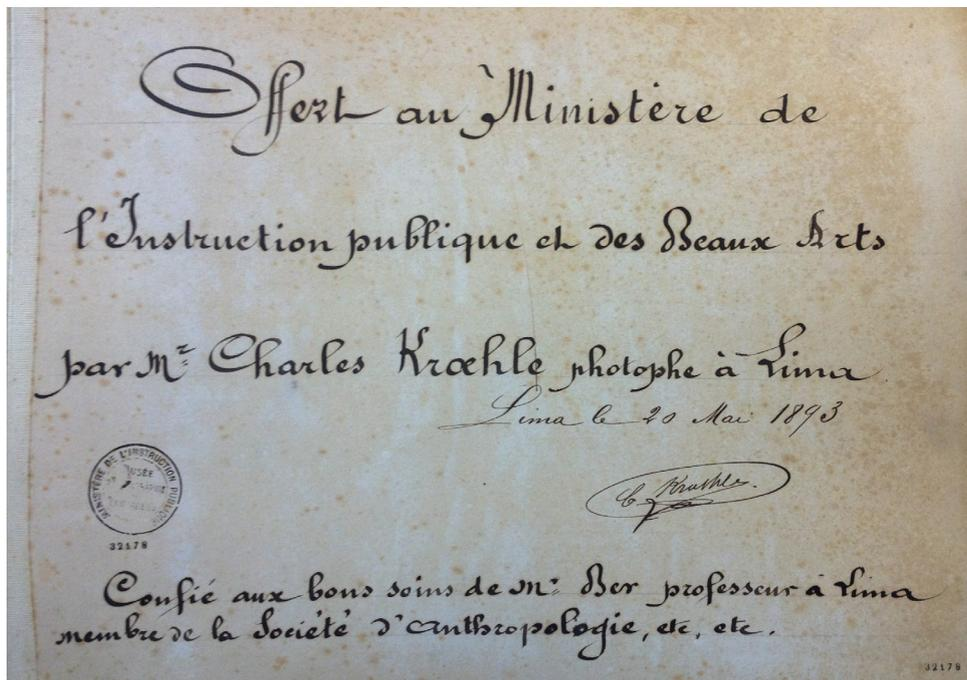 Offert au Ministère de
l'Instruction publique et des Beaux Arts
par Mr Charles Krœhle photophe à Lima
Lima le 20 Mai 1893
C. Krœhle.
MINISTÈRE DE L'INSTRUCTION PUBLIQUE
MUSÉE
32178
Confié aux bons soins de Mr Ber professeur à Lima
membre de la Société d'Anthropologie, etc, etc.
32178